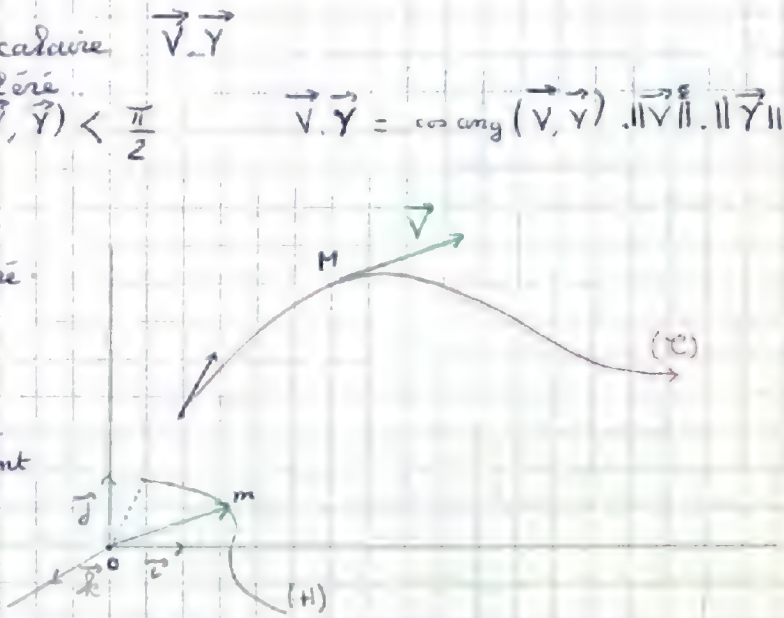 calaire \vec{V}.\vec{γ}
léré.
\vec{V}, \vec{γ}) < \frac{π}{2}    \vec{V}.\vec{γ} = cos ang (\vec{V}, \vec{γ}) .||\vec{V}||.||\vec{γ}||
\vec{V}
M
ré.
(C)
nt
m
\vec{j}
o \vec{i}
\vec{k}
(H)